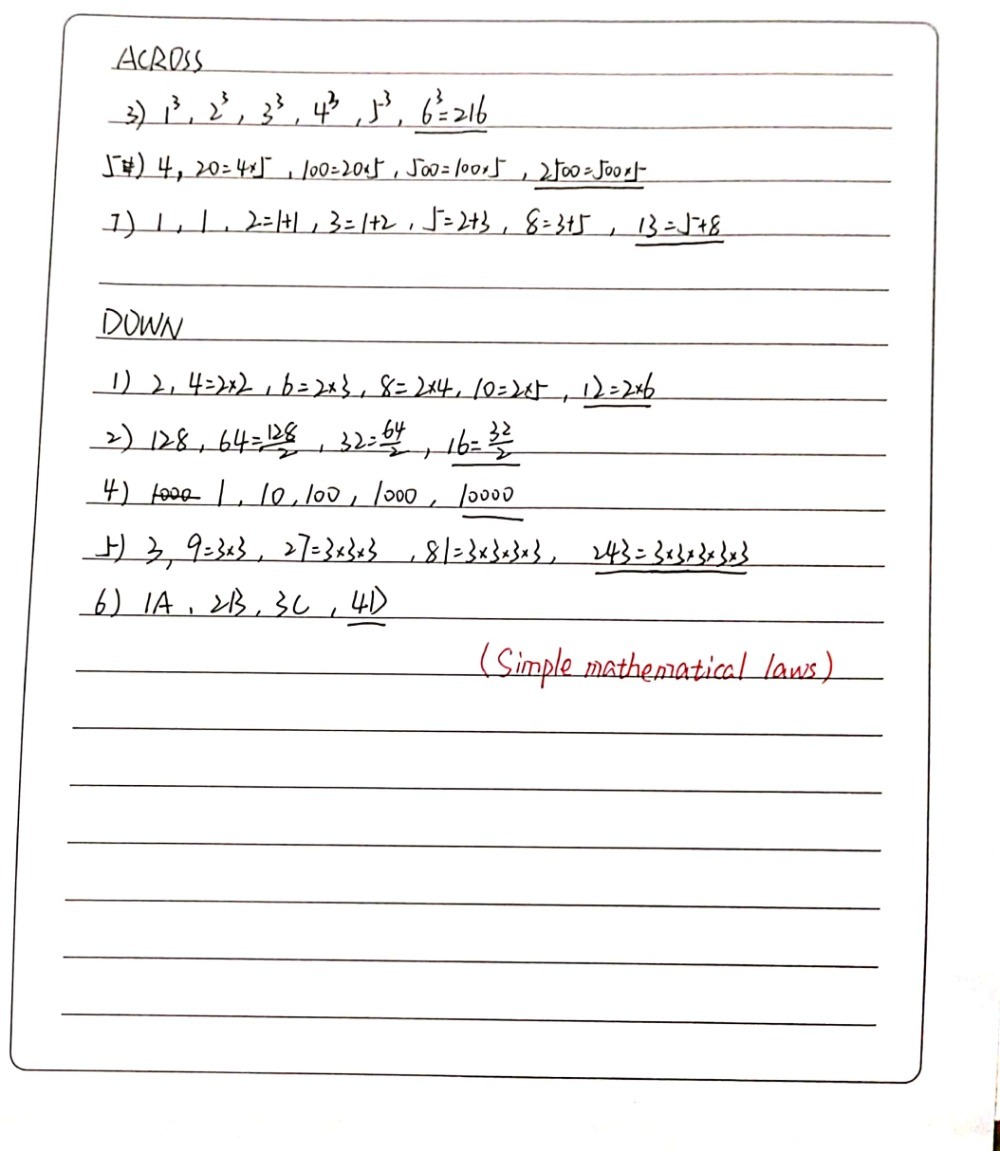 ACROSS
3) 1³, 2³, 3³, 4³, 5³, 6³=216
5) 4, 20=4×5, 100=20×5, 500=100×5, 2500=500×5
7) 1, 1, 2=1+1, 3=1+2, 5=2+3, 8=3+5, 13=5+8
DOWN
1) 2, 4=2×2, 6=2×3, 8=2×4, 10=2×5, 12=2×6
2) 128, 64=128/2, 32=64/2, 16=32/2
4) 1000 1, 10, 100, 1000, 10000
5) 3, 9=3×3, 27=3×3×3, 81=3×3×3×3, 243=3×3×3×3×3
6) 1A, 2B, 3C, 4D
(Simple mathematical laws)